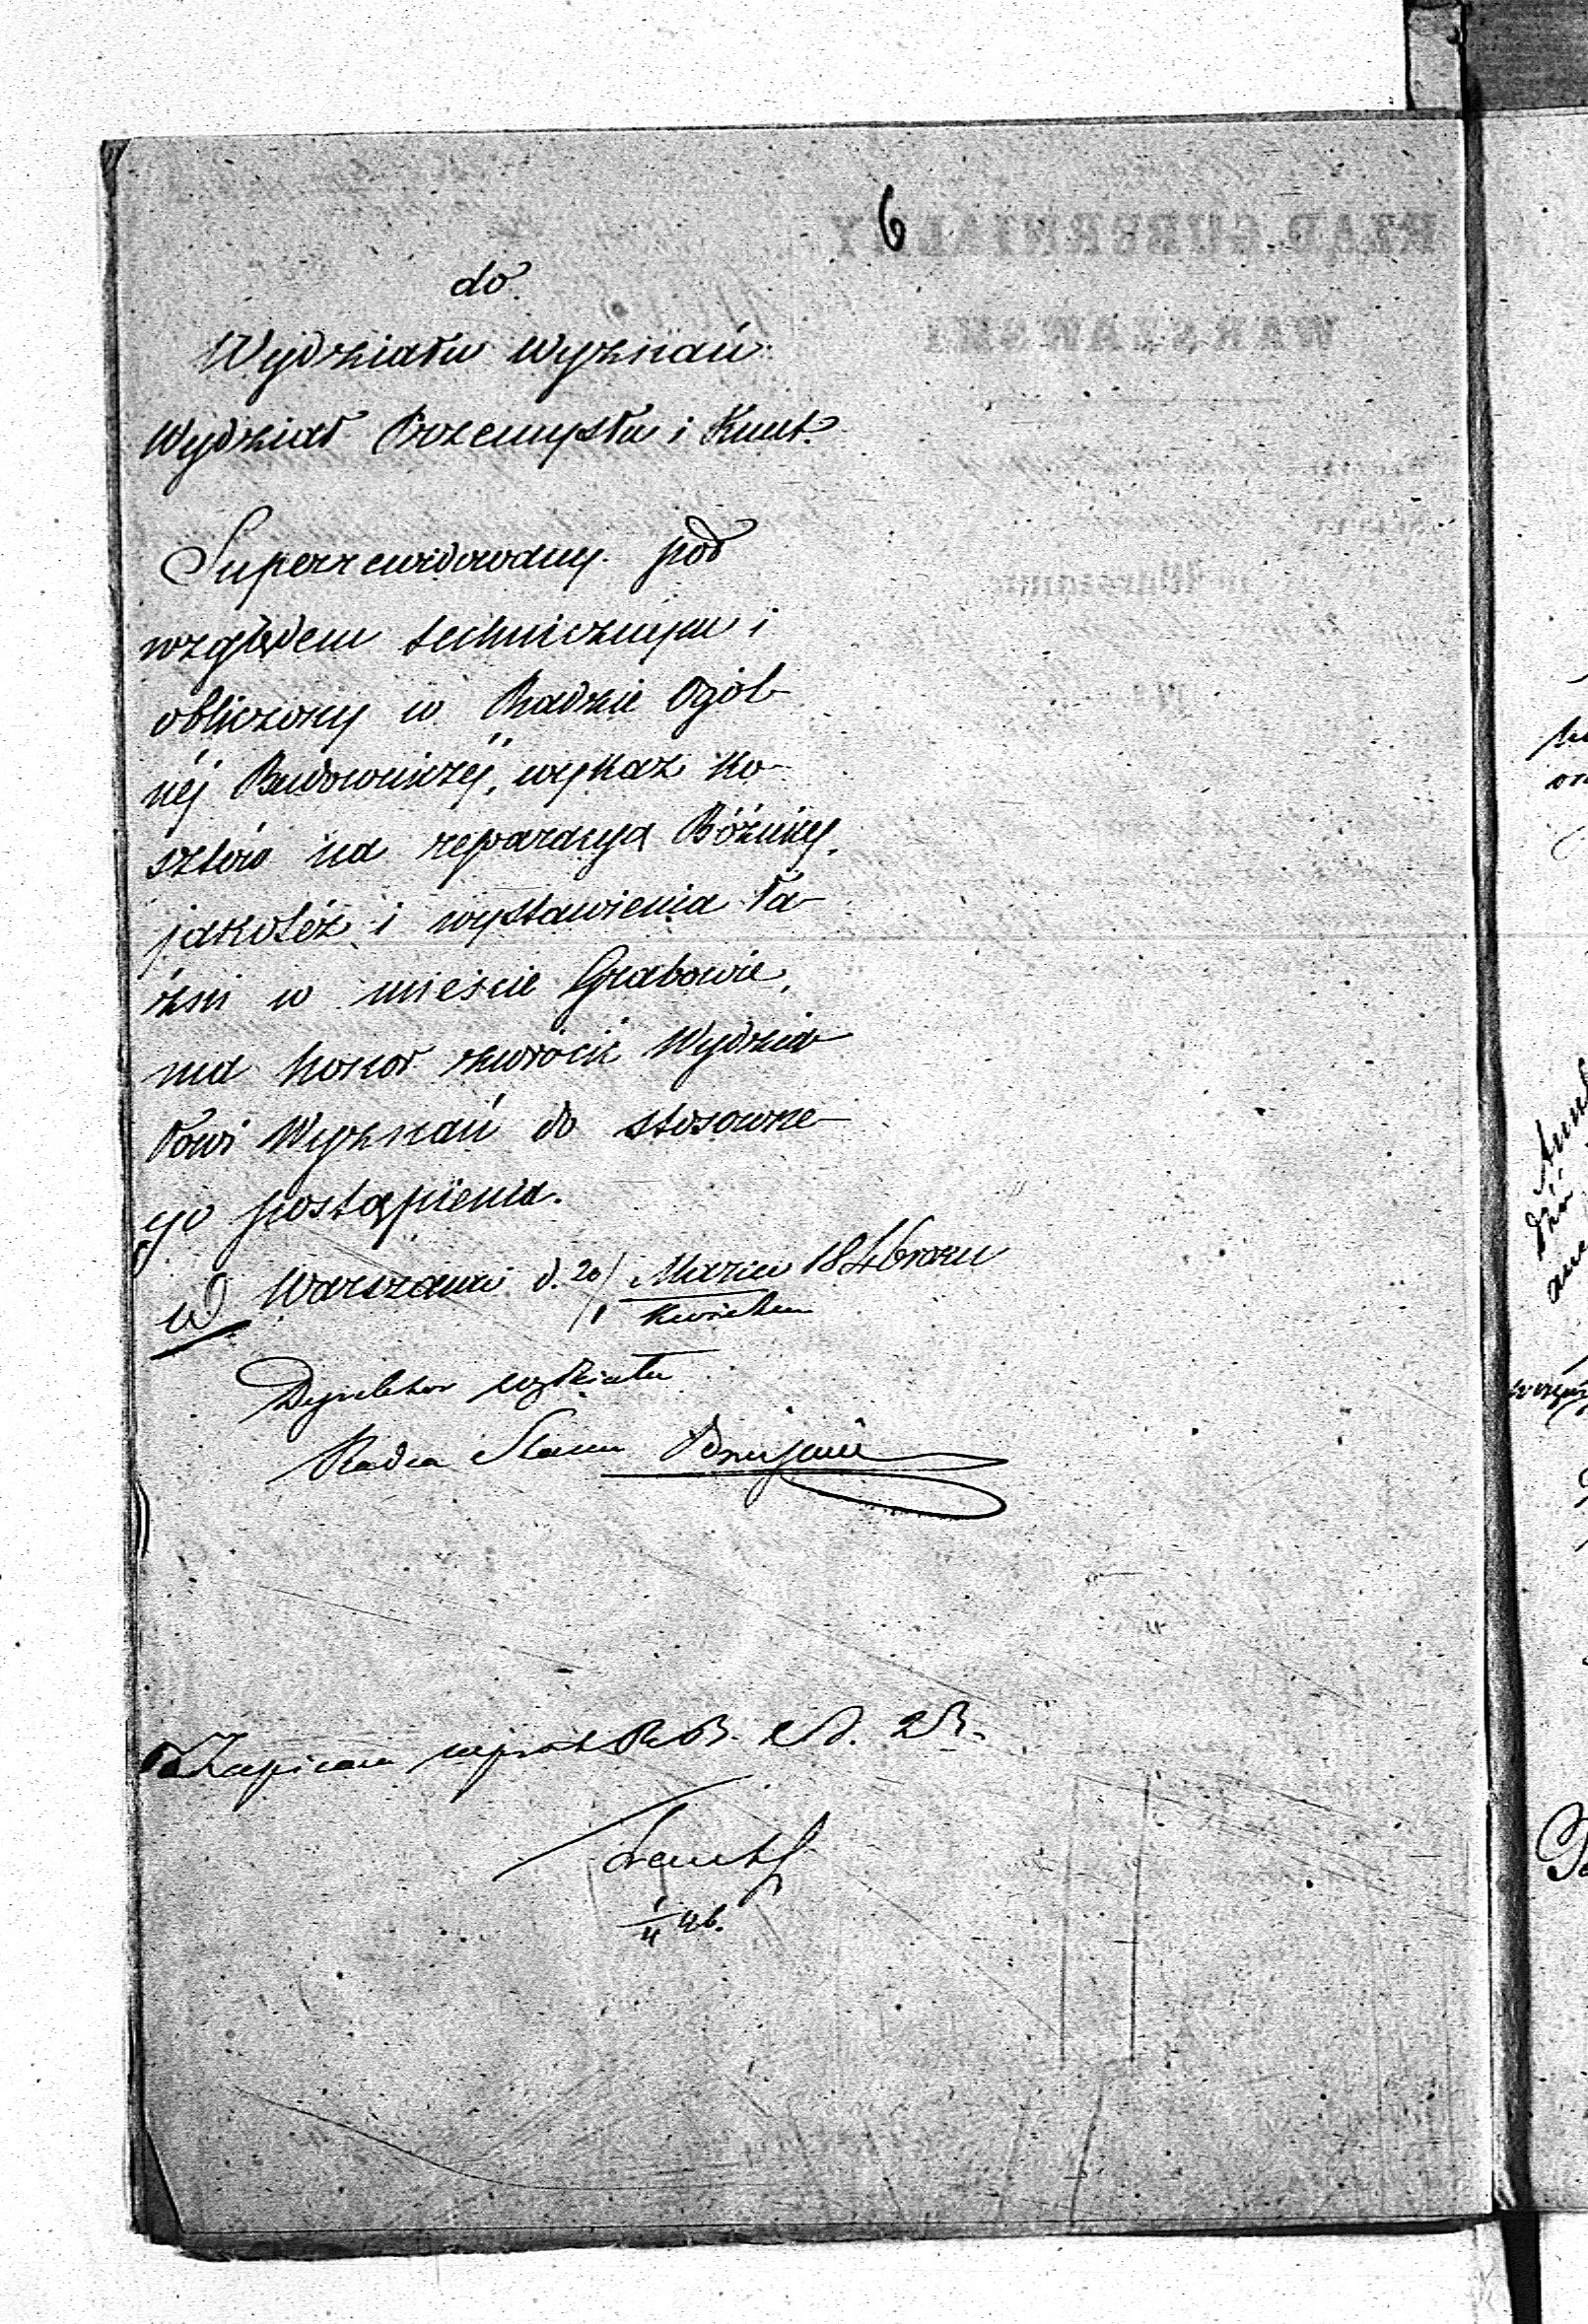 6
do
Wydziału Wyznań
Wydział Przemysłu i Kunt.
Superrewidowany pod
względem technicznym i
obliczony w Radzie Ogól-
néj Budowniczéj, wykaz ko-
sztów na reparacyą Bóżnicy,
jakotéż i wystawienia ła-
źni w mieście Grabowie,
ma honor zwrócić Wydzia-
łowi Wyznań do stosowne-
go postąpienia.
w Warszawie d. 20/1 Marca/Kwietnia 1846 roku
Dyrektor Wydziału
Radca Stanu
Zapisano
1/4 46.